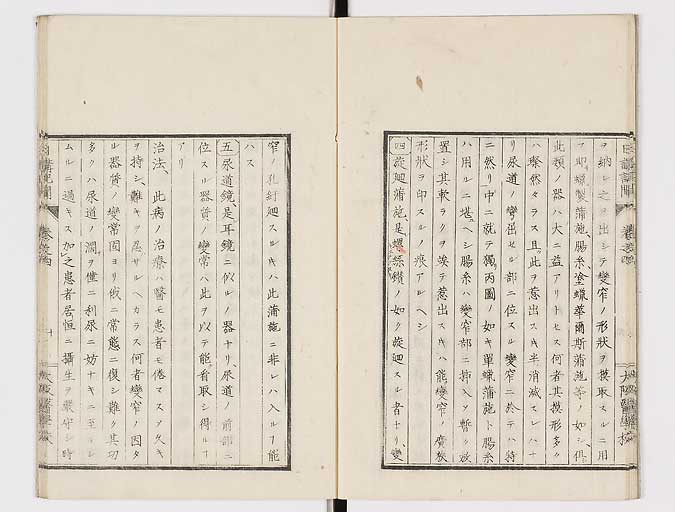 ヲ納レ之ヲ出シテ變窄ノ形狀ヲ摸取スルニ用
フ即蠟製蒲施、腸糸塗蠟華爾斯蒲施等ノ如シ、倶
此類ノ器ハ大ニ益アリトセス何者其摸形多ク
ハ粲然タラス且此ヲ惹出スキ半消滅スレハナ
リ尿道ノ彎出セル部ニ位スル變窄ニ於テハ特
ニ然リ中ニ就テ獨丙圖ノ如キ單蠟蒲施ト腸糸
ハ用ルニ堪ヘシ腸糸ハ變窄部ニ揷入ヲ暫ク放
置シ其軟ラクヲ俟テ惹出スキハ能變窄ノ廣狹
形狀ヲ印スルノ痕アルヘシ
四旋廻蒲施、是螺絲鑽ノ如ク旋廻スル者ナリ、變
窄ノ孔紆廻スルキハ此蒲施ニ非レハ入ルヿ能
ハス
五尿道鏡、是耳鏡ニ似ルノ器ナリ、尿道ノ前部ニ
位スル器質ノ變常ハ此ヲ以テ能看取シ得ルヿ
アリ
治法、此病ノ治療ハ醫モ患者モ倦マス久キ
ヲ持シ、難キヲ忍サルヘカラス何者變窄ノ因タ
ル器質ノ變常固ヨリ俄ニ常態ニ復シ難ク其功
多クハ尿道ノ濶ヲ僅ニ利尿ニ妨ナキニ至ルレ
ムルニ過キス加之患者居恒ニ攝生ヲ嚴守シ時